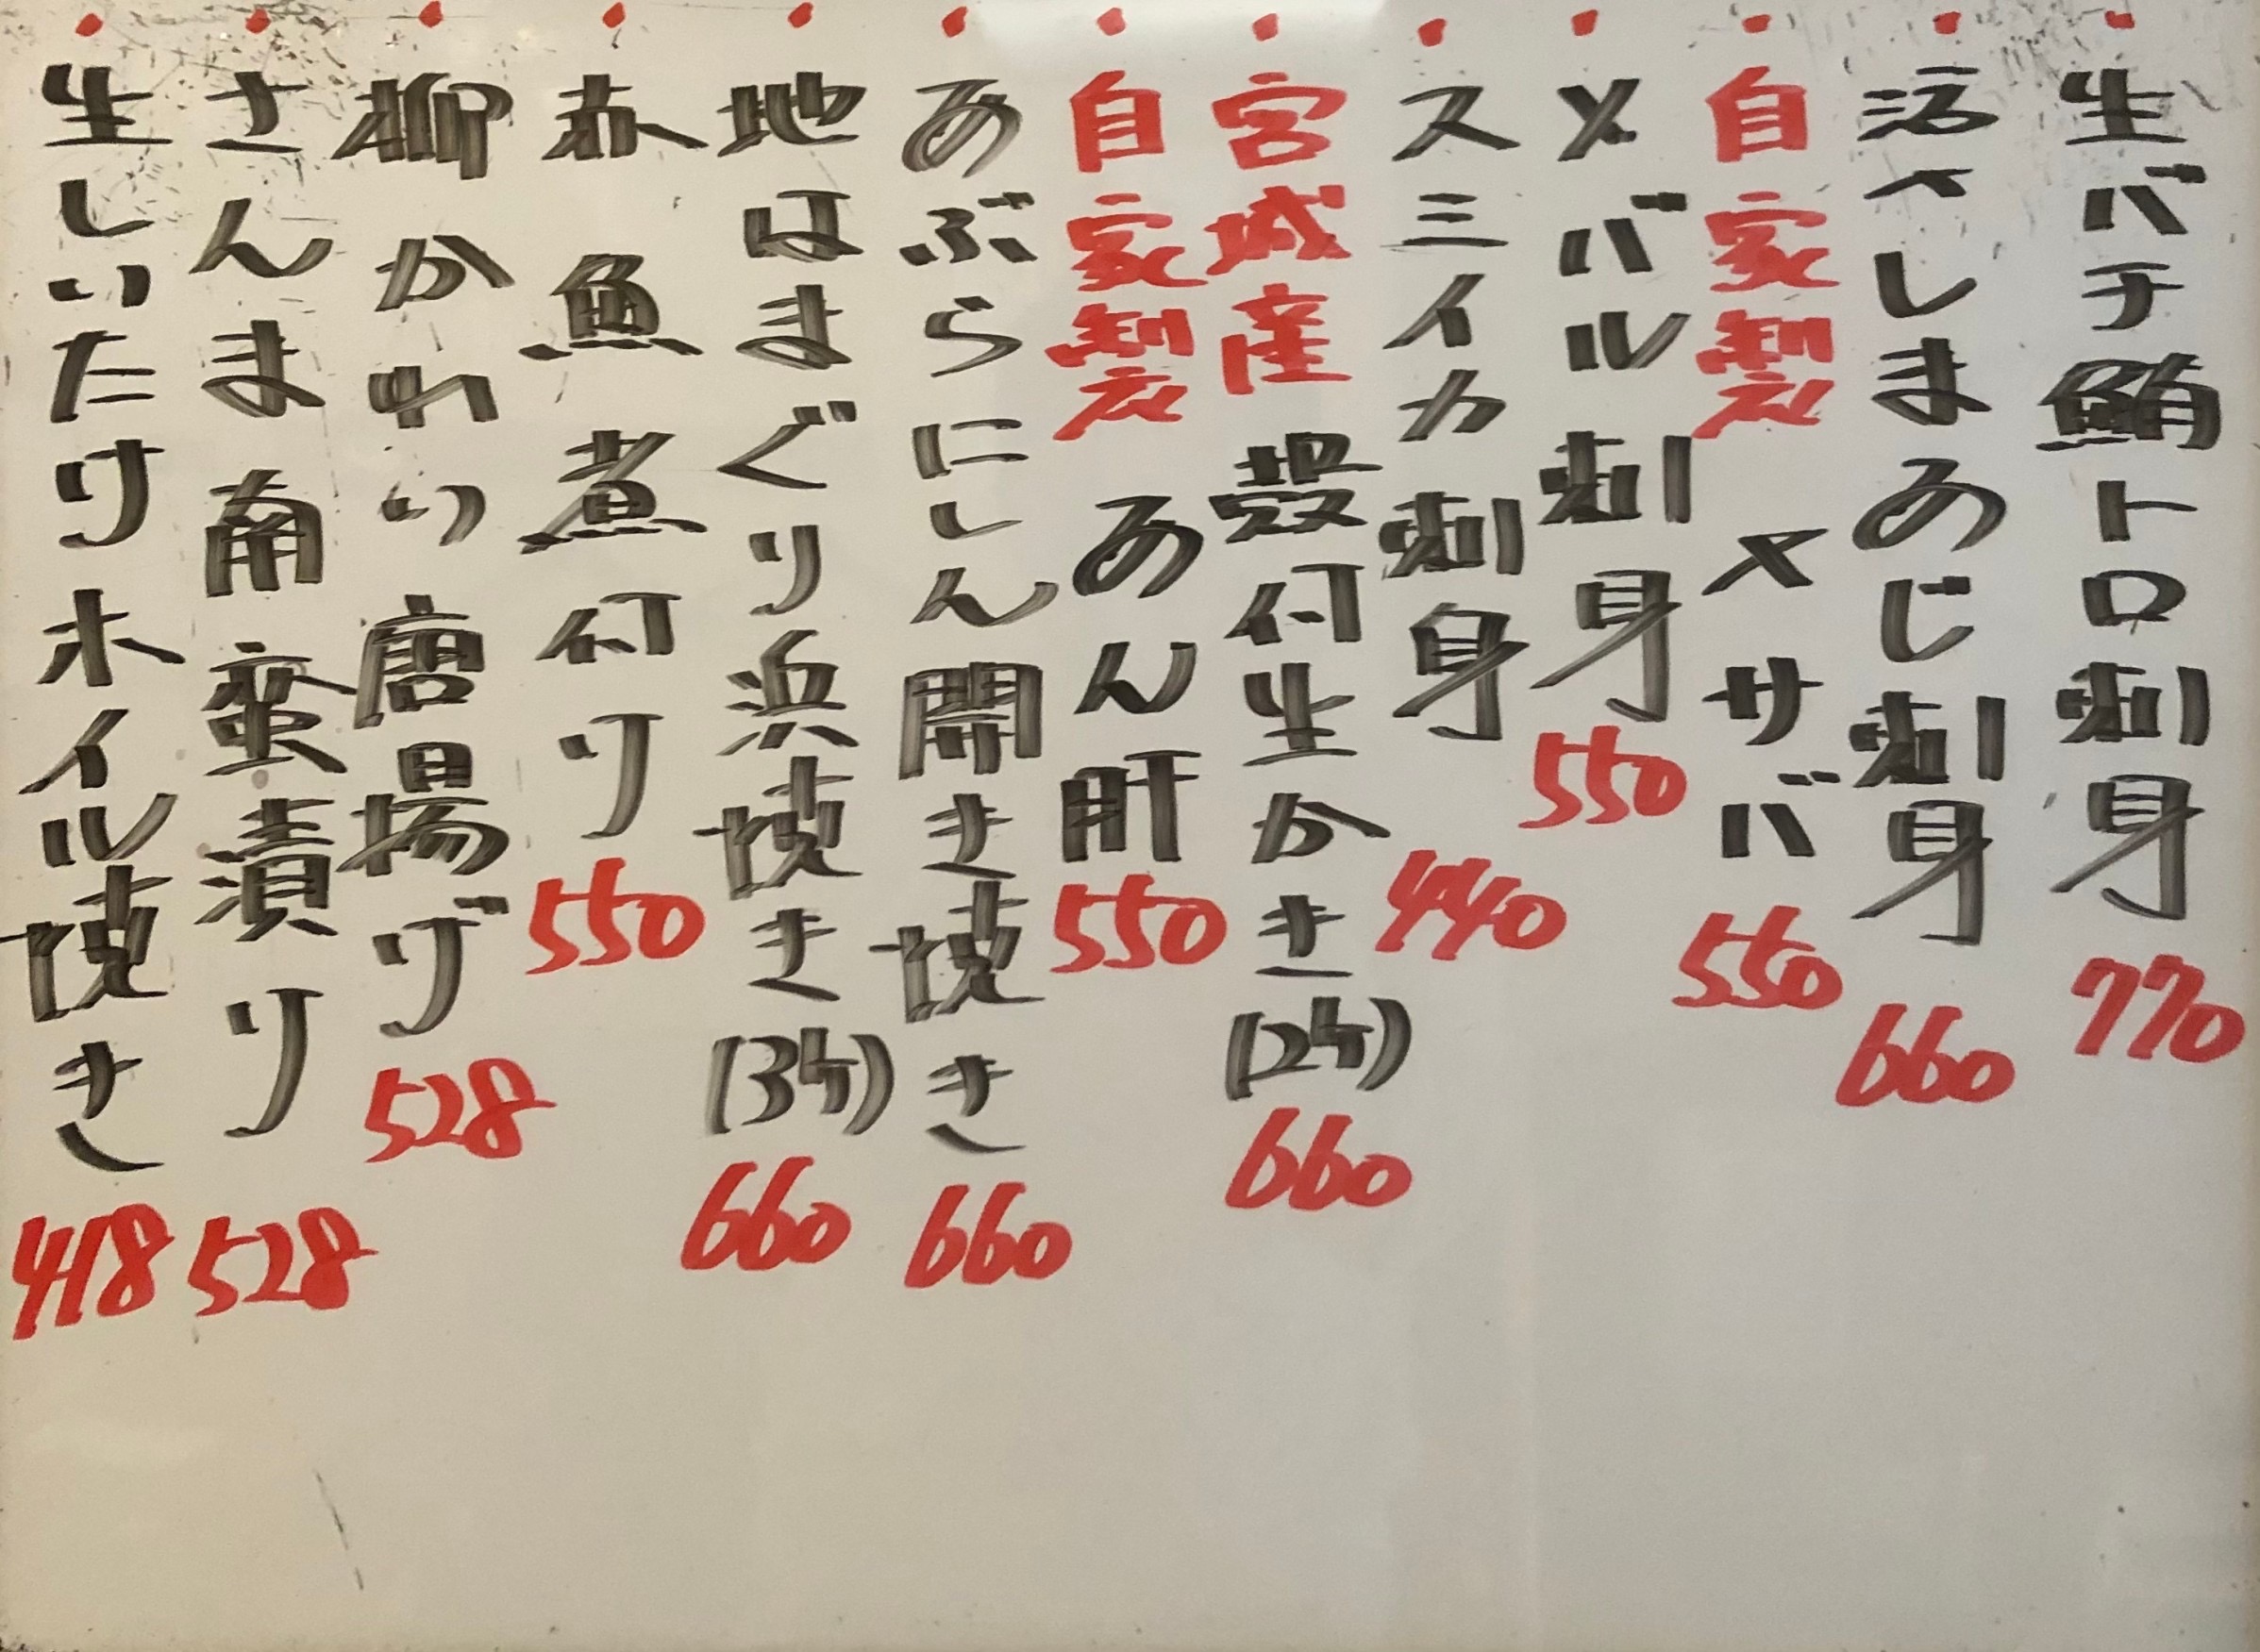 生バチ鮪トロ刺身 770
活〆しまあじ刺身 660
自家製 〆サバ 550
メバル刺身 550
スミイカ刺身 440
宮城産 殻付生かき(2ケ) 660
自家製 あん肝 550
あぶらにしん開き焼き 660
地はまぐり浜焼き(3ケ) 660
赤魚煮付け 550
柳かれい唐揚げ 528
さんま南蛮漬け 528
生しいたけホイル焼き 418